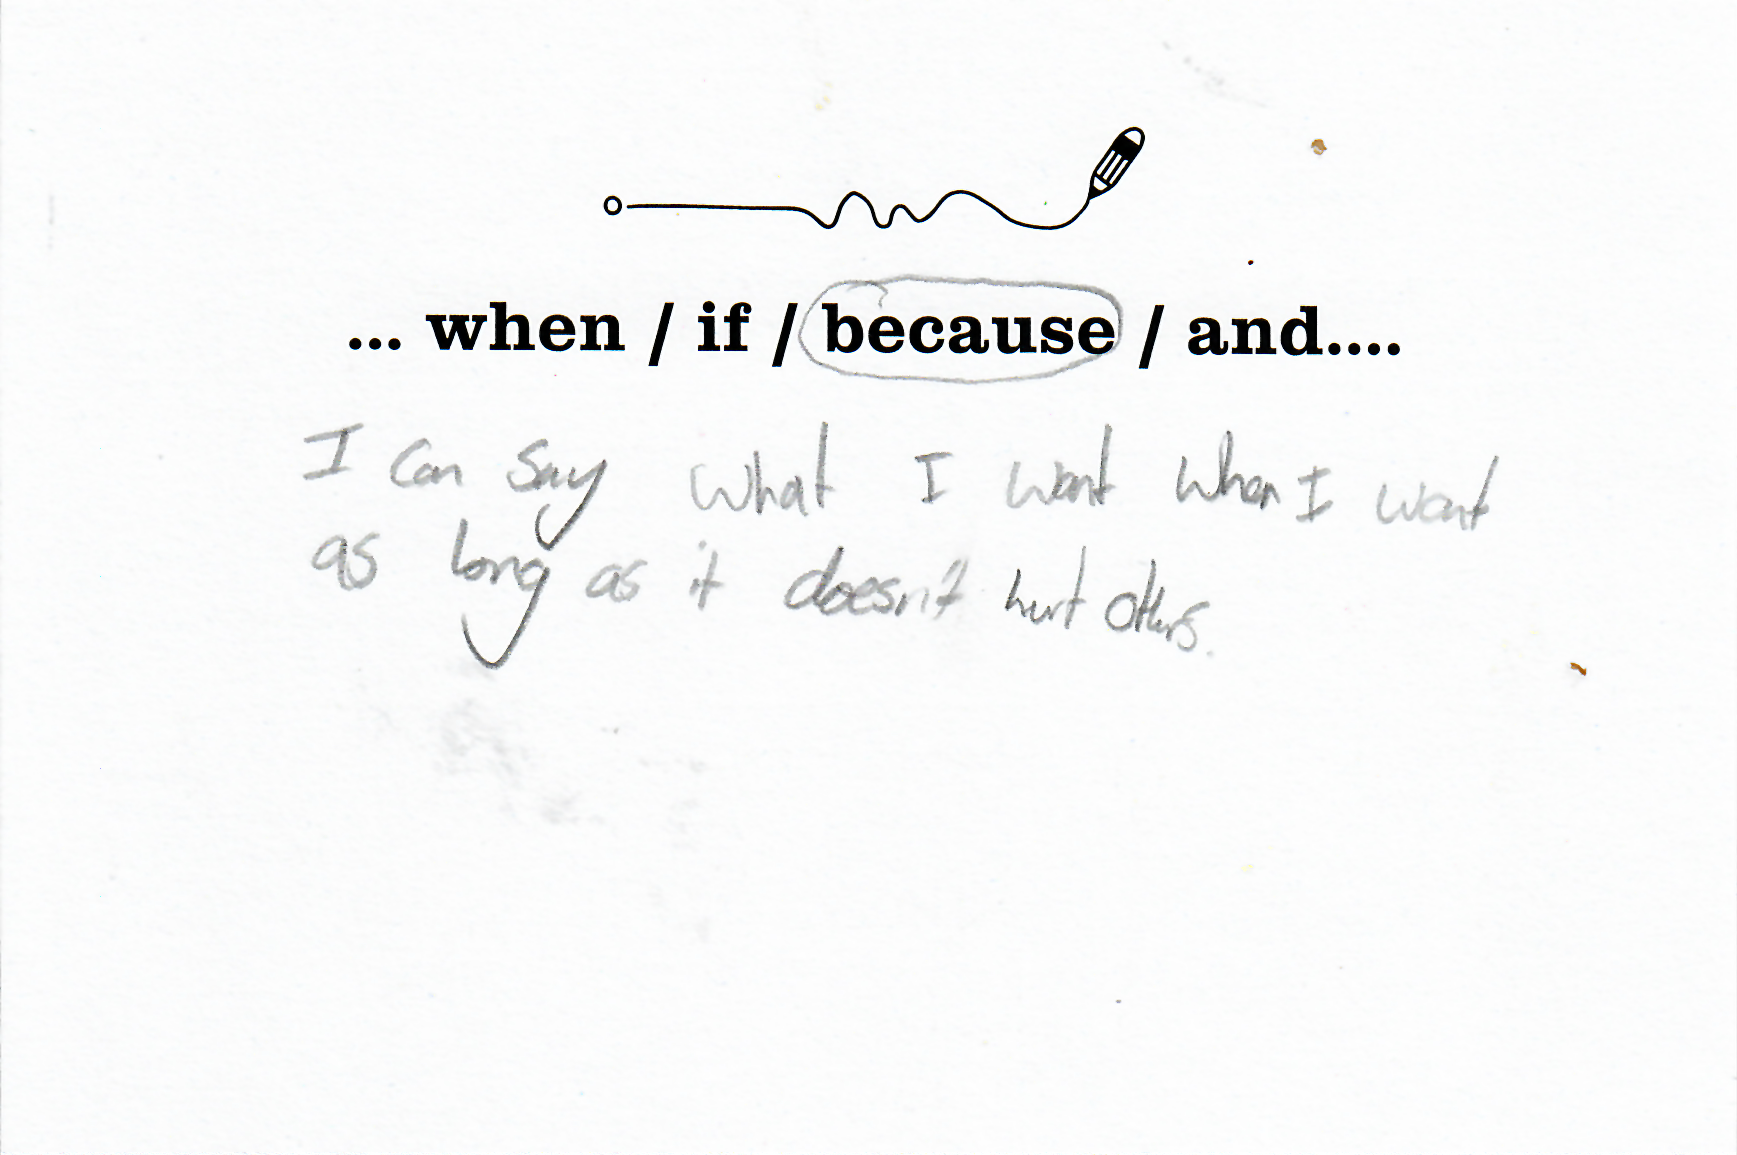 ... when / if / because / and....
I can say what I want when I want
as long as it doesn't hurt others.